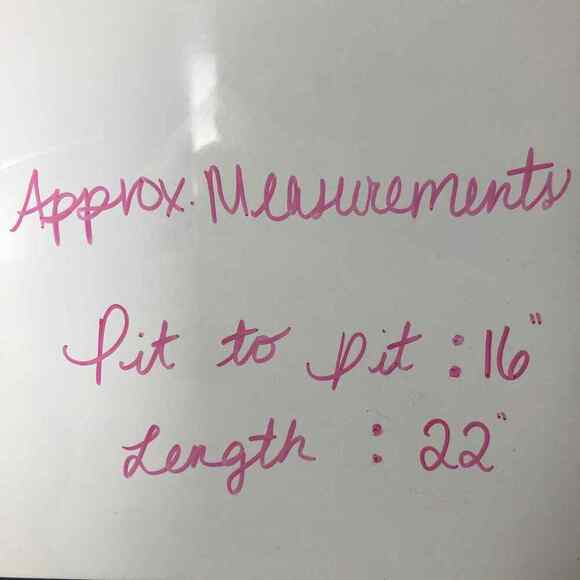 Approx. Measurements
Pit to pit : 16"
Length : 22"